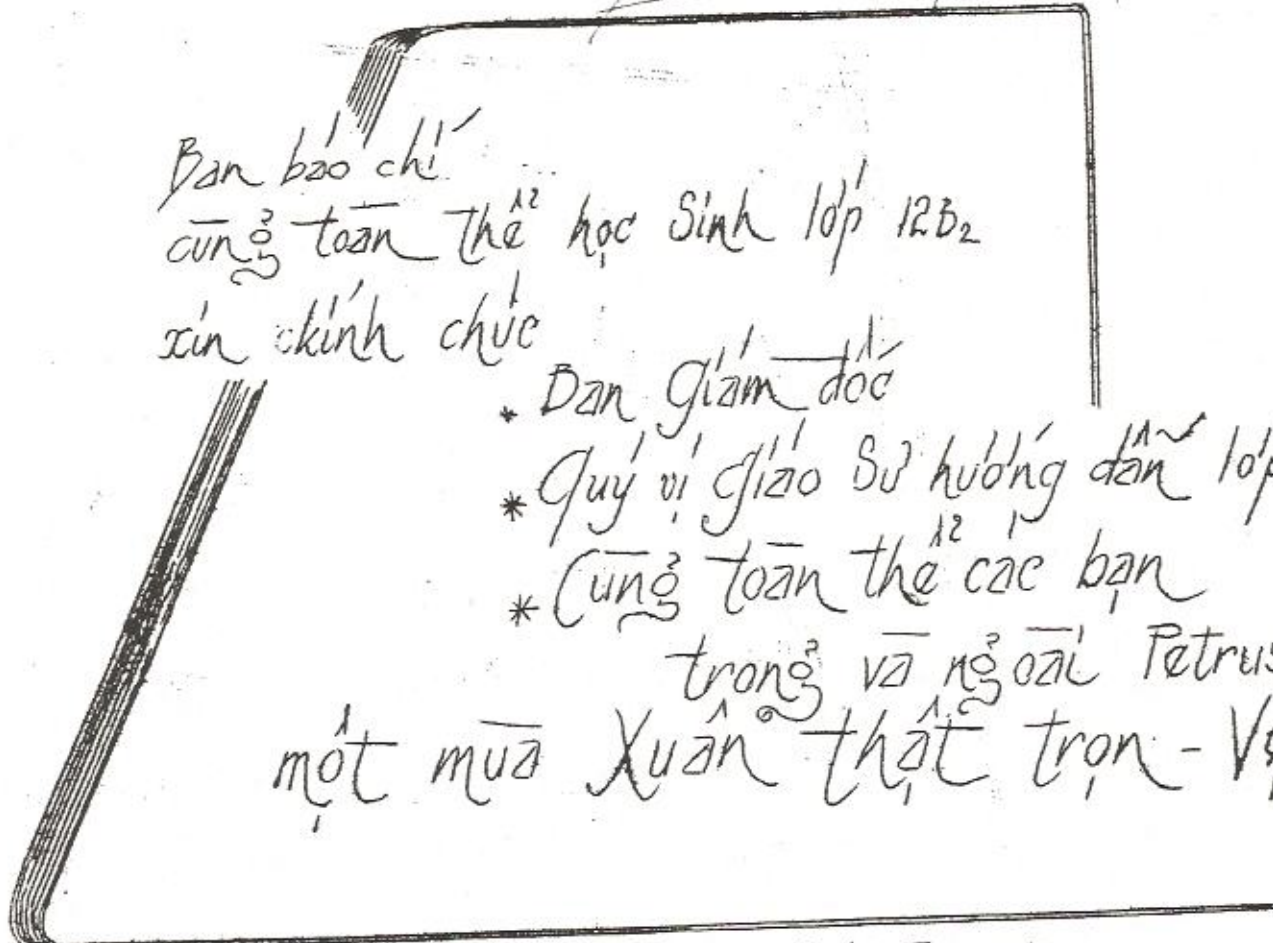 Ban báo chí
cùng toàn thể học Sinh lớp 12B₂
xin kính chúc
* Ban Giám đốc
* Quý vị Giáo Sư hướng dẫn lớp
* Cùng toàn thể các bạn
trong và ngoài Petrus
một mùa Xuân thật trọn -